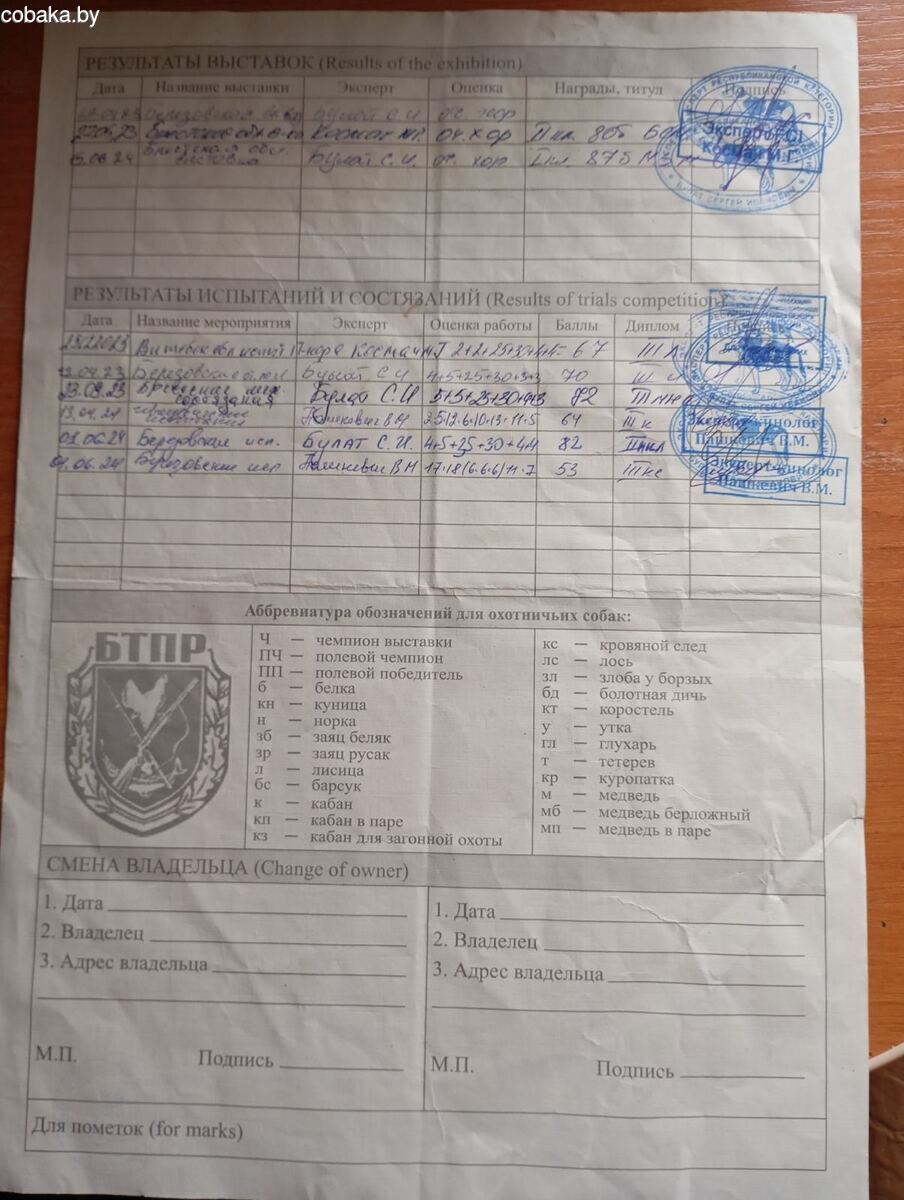 cobaka.by
РЕЗУЛЬТАТЫ ВЫСТАВОК (Results of the exhibition)
Дата Название выставки Эксперт Оценка Награды, титул Подпись
Булат С.И. оч. хор
27.05.23 Космач оч. хор II кл.
Брестская обл. выставка Булат С.И. оч. хор I кл. 875
Эксперт
Космач М.Г.
БУЛАТ СЕРГЕЙ ИВАНОВИЧ
РЕЗУЛЬТАТЫ ИСПЫТАНИЙ И СОСТЯЗАНИЙ (Results of trials competition)
Дата Название мероприятия Эксперт Оценка работы Баллы Диплом
Космач 67 III
.04.23 Березовские Булат С.И 4+5+25+30+3+3 70 III
23.09.23 состязания Булат С.И 82
13.04.24 испытания Пашкевич В.М 64 III к
01.06.24 Березовские исп. БУЛАТ С.И. 4+5+25+30+ 82
01.06.24 Березовские исп Пашкевич В.М 17.18(6.6.6)11.7 53 III кс
Эксперт-кинолог
Пашкевич В.М.
Эксперт-кинолог
Пашкевич В.М.
Аббревиатура обозначений для охотничьих собак:
БТПР
Ч — чемпион выставки
ПЧ — полевой чемпион
ПП — полевой победитель
б — белка
кн — куница
н — норка
зб — заяц беляк
зр — заяц русак
л — лисица
бс — барсук
к — кабан
кп — кабан в паре
кз — кабан для загонной охоты
кс — кровяной след
лс — лось
зл — злоба у борзых
бд — болотная дичь
кт — коростель
у — утка
гл — глухарь
т — тетерев
кр — куропатка
м — медведь
мб — медведь берложный
мп — медведь в паре
СМЕНА ВЛАДЕЛЬЦА (Change of owner)
1. Дата
2. Владелец
3. Адрес владельца
М.П. Подпись
1. Дата
2. Владелец
3. Адрес владельца
М.П. Подпись
Для пометок (for marks)